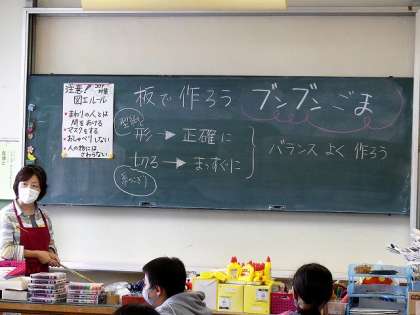 注意! コロナ対策
図工ルール
・まわりの人とは
間をあける
・マスクをする
・おしゃべりしない
・人の物には
さわらない
板で 作ろう ブンブン ごま
型紙
形 → 正確に
切る → まっすぐに
糸のこぎり
バランス よく 作ろう